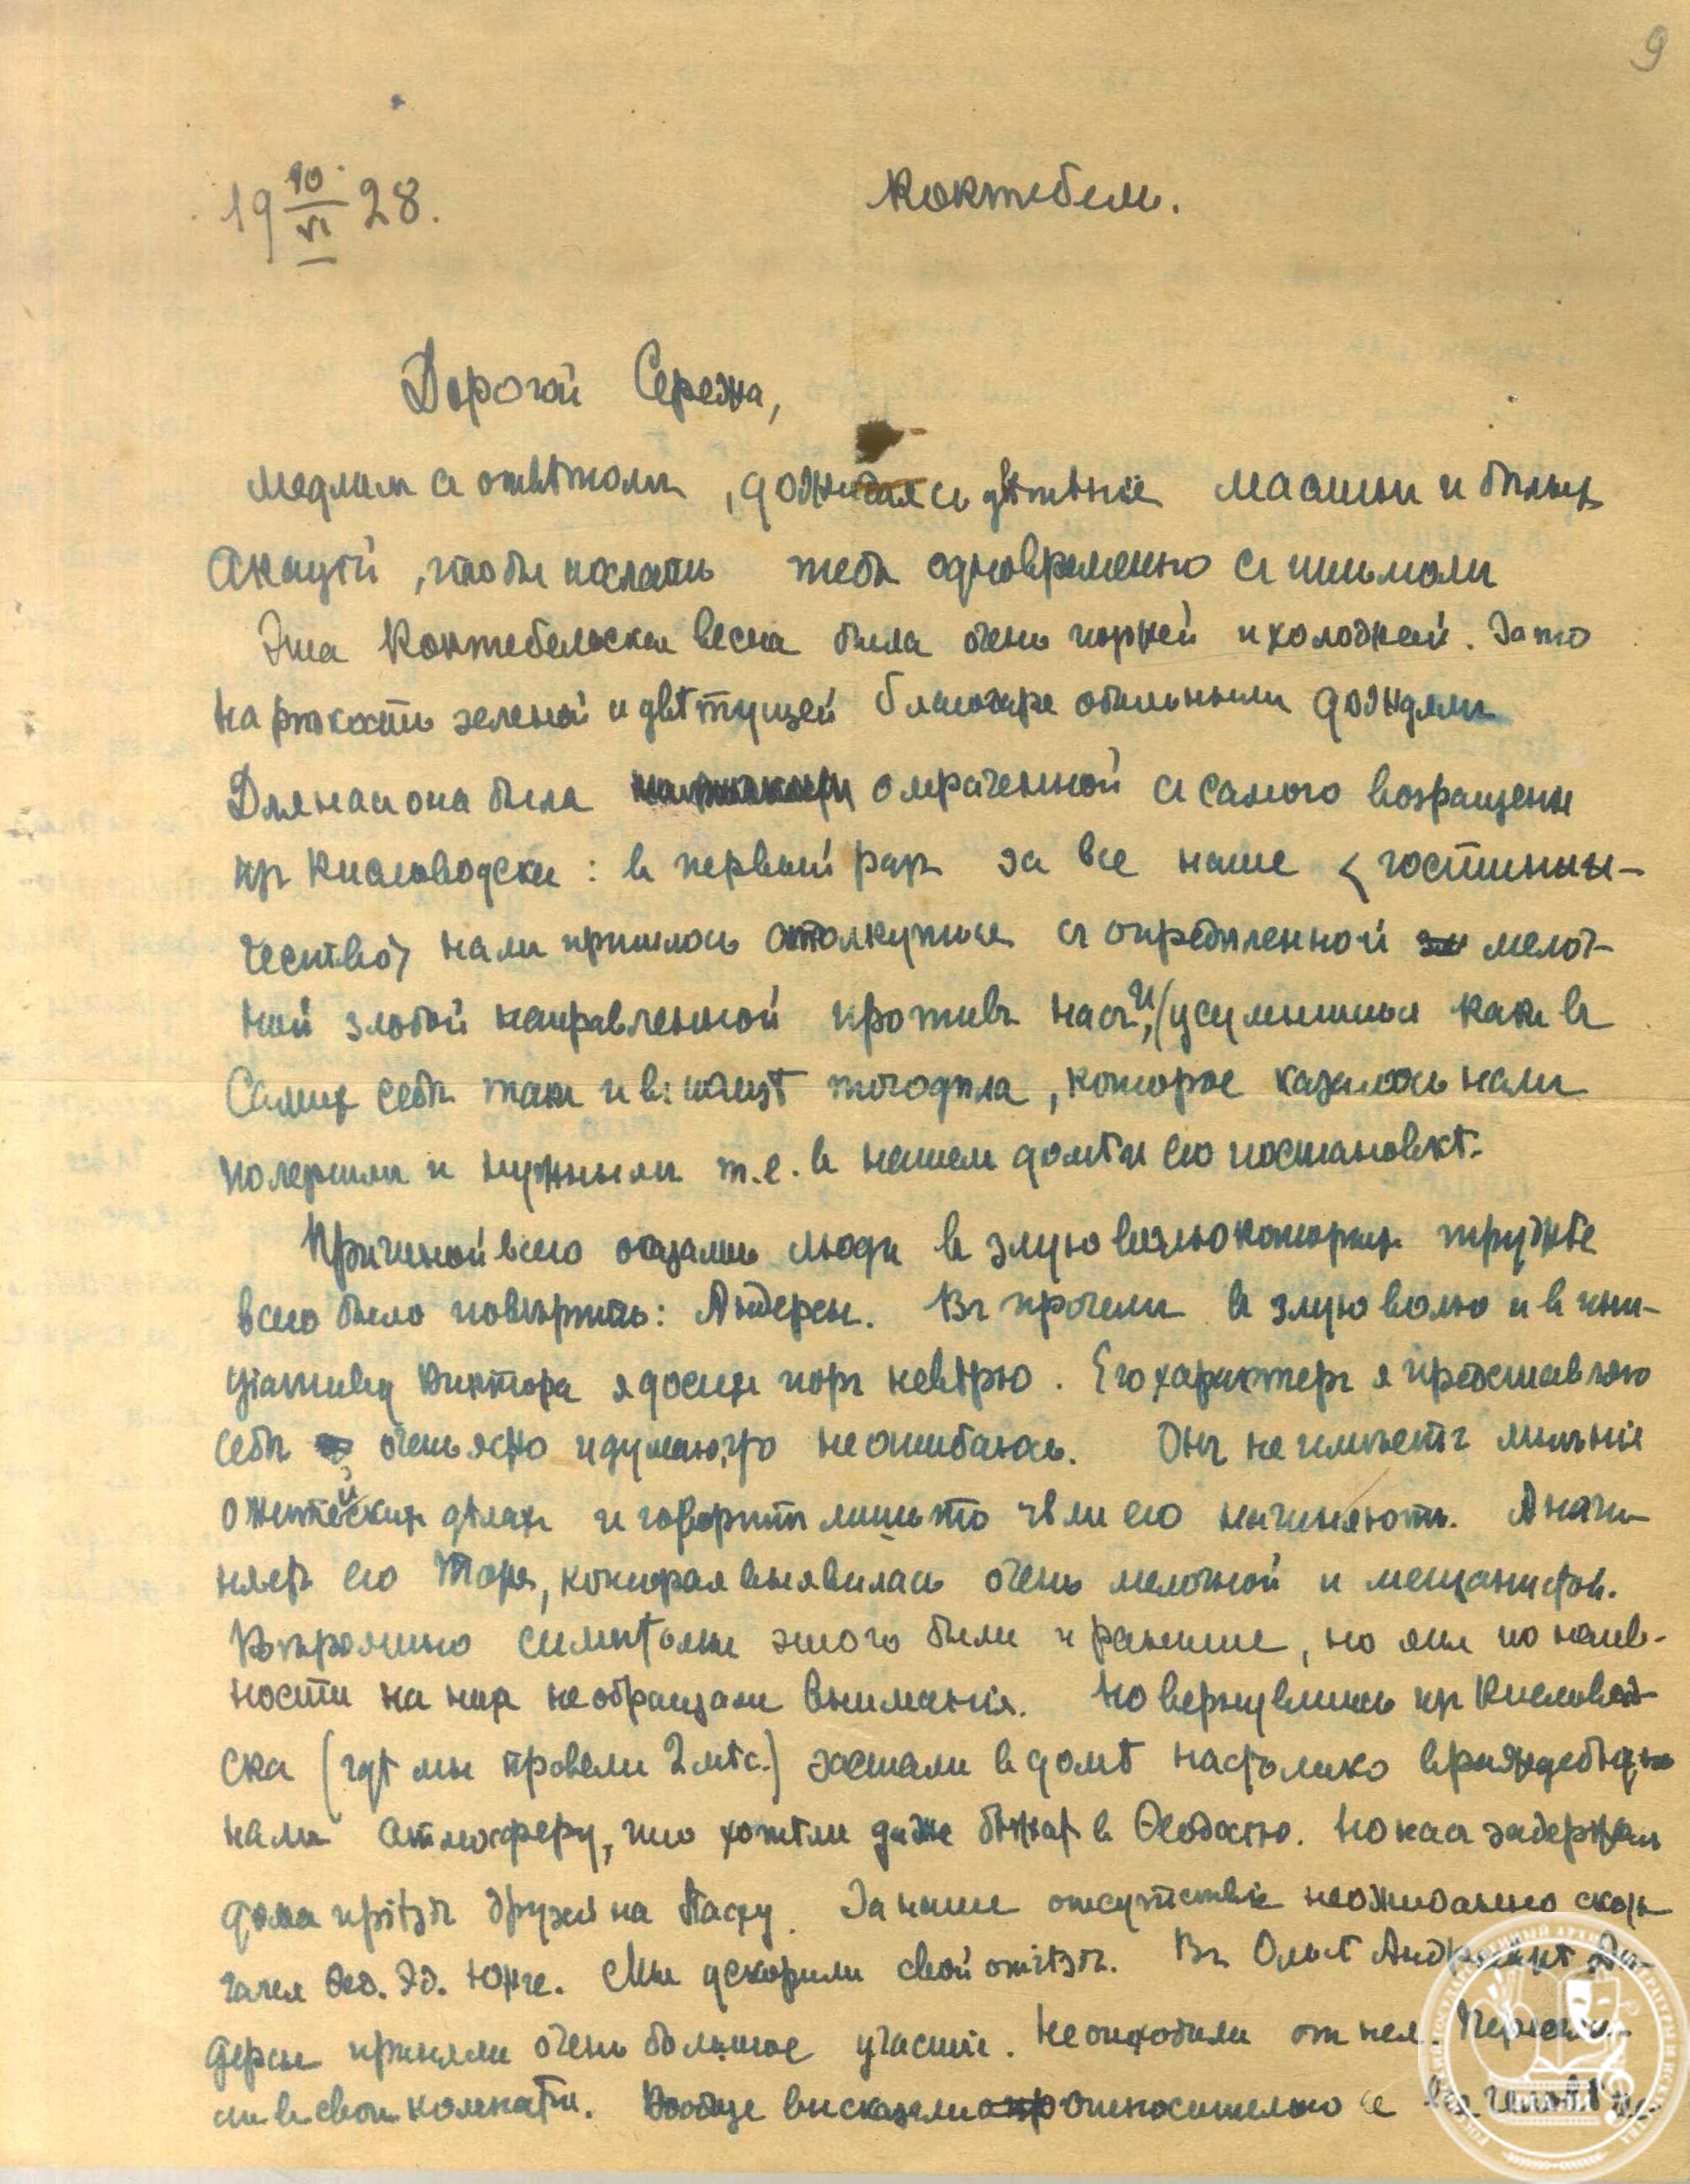 9
19 10/VI 28.
Коктебель.
Дорогой Сережа,
медлил с ответомъ, дожидаясь цвѣтенiя маслин и бѣлых
Акацiй, чтобы послать тебѣ одновременно с письмомъ
Эта Коктебельская весна была очень поздней и холодной. Зато
на рѣдкость зеленой и цвѣтущей благодаря обильнымъ дождямъ
Для нас она была омраченной с самого возвращенья
из Кисловодска: в первый раз за все наше <гостинни-
чество> нам пришлось столкнуться с опредѣленной мелоч-
ной злобой направленной противъ насъ, и усумниться как в
самих себѣ так и в: пользѣ того дѣла, которое казалось нам
полезным и нужнымъ т.е. в нашем домѣ и его постановкѣ.
Причиной всего оказались люди в злую волю которых труднѣе
всего было повѣрить: Андерсы. Въ прочем в злую волю и в ини-
цiативу Виктора я до сих поръ не вѣрю. Его характеръ я представляю
себѣ очень ясно и думаю, что не ошибаюсь. Онъ не имѣетъ мнѣнiе
о житейских дѣлах и говоритъ лишь то чѣм его начиняютъ. А начи-
няет его Тора, которая выявилась очень мелочной и мещанистой.
Вѣроятно симптомы этого были и раньше, но мы по наив-
ности на них не обращали вниманiя. Но вернувшись из Кисловод-
ска (гдѣ мы провели 2 мѣс.) застали в домѣ настолько враждебную
нам атмосферу, что хотѣли даже бѣжать в Ѳеодосiю. Но нас задержал
дома прiѣздъ друзей на Пасху. За наше отсутствiе неожиданно скон-
чался Ѳед. Эд. Юнге. Мы ускорили свой отъѣздъ. Въ Ольгѣ Андреевнѣ Ан-
дерсы приняли очень большое участiе. Не отходили от нея. Перевели
ее в свои комнаты. Вообще высказали относительно ее